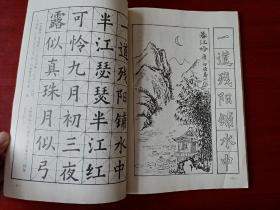 一道残阳铺水中
暮江吟 唐 白居易
一道残阳铺水中
半江瑟瑟半江红
可怜九月初三夜
露似真珠月似弓